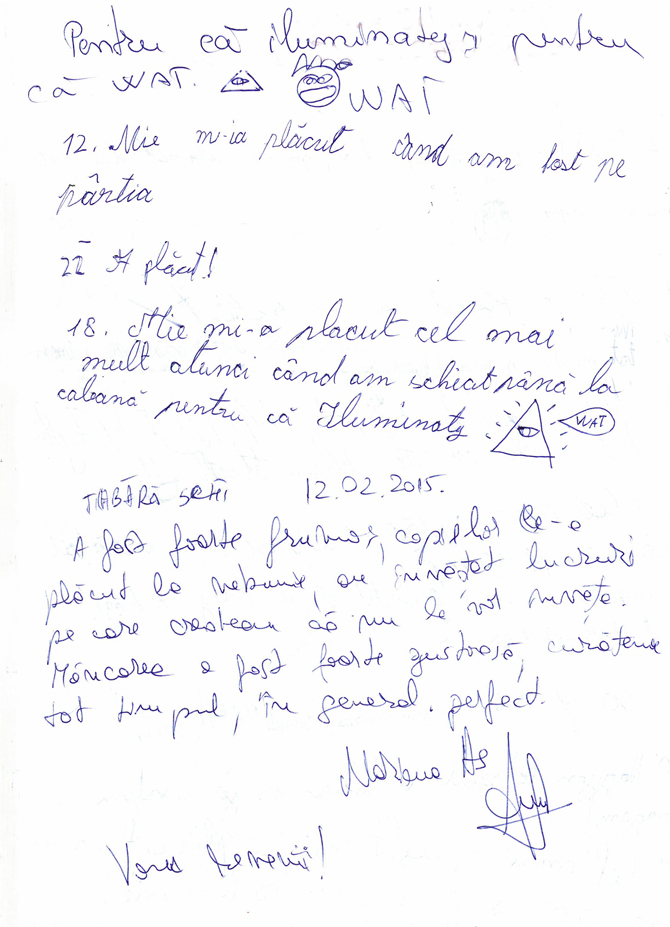 Pentru că iluminatey și pentru
că WAT. WAT
12. Mie m-ia plăcut când am fost pe
pârtia
22 A plăcut!
18. Mie mi-a placut cel mai
mult atunci când am schiat până la
cabană pentru că Iluminaty WAT
TABĂRĂ SCHI 12.02.2015.
A fost foarte frumos, copiilor le-a
plăcut la nebunie, au învățat lucruri
pe care credeau că nu le vor învăța.
Mâncarea a fost foarte gustoasă, curățenie
tot timpul, în general perfect.
Mariana
Vom reveni!